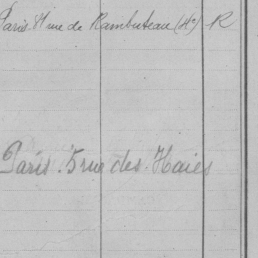 Paris. 81 rue de Rambuteau (4e) R
Paris. 5 rue des Haies